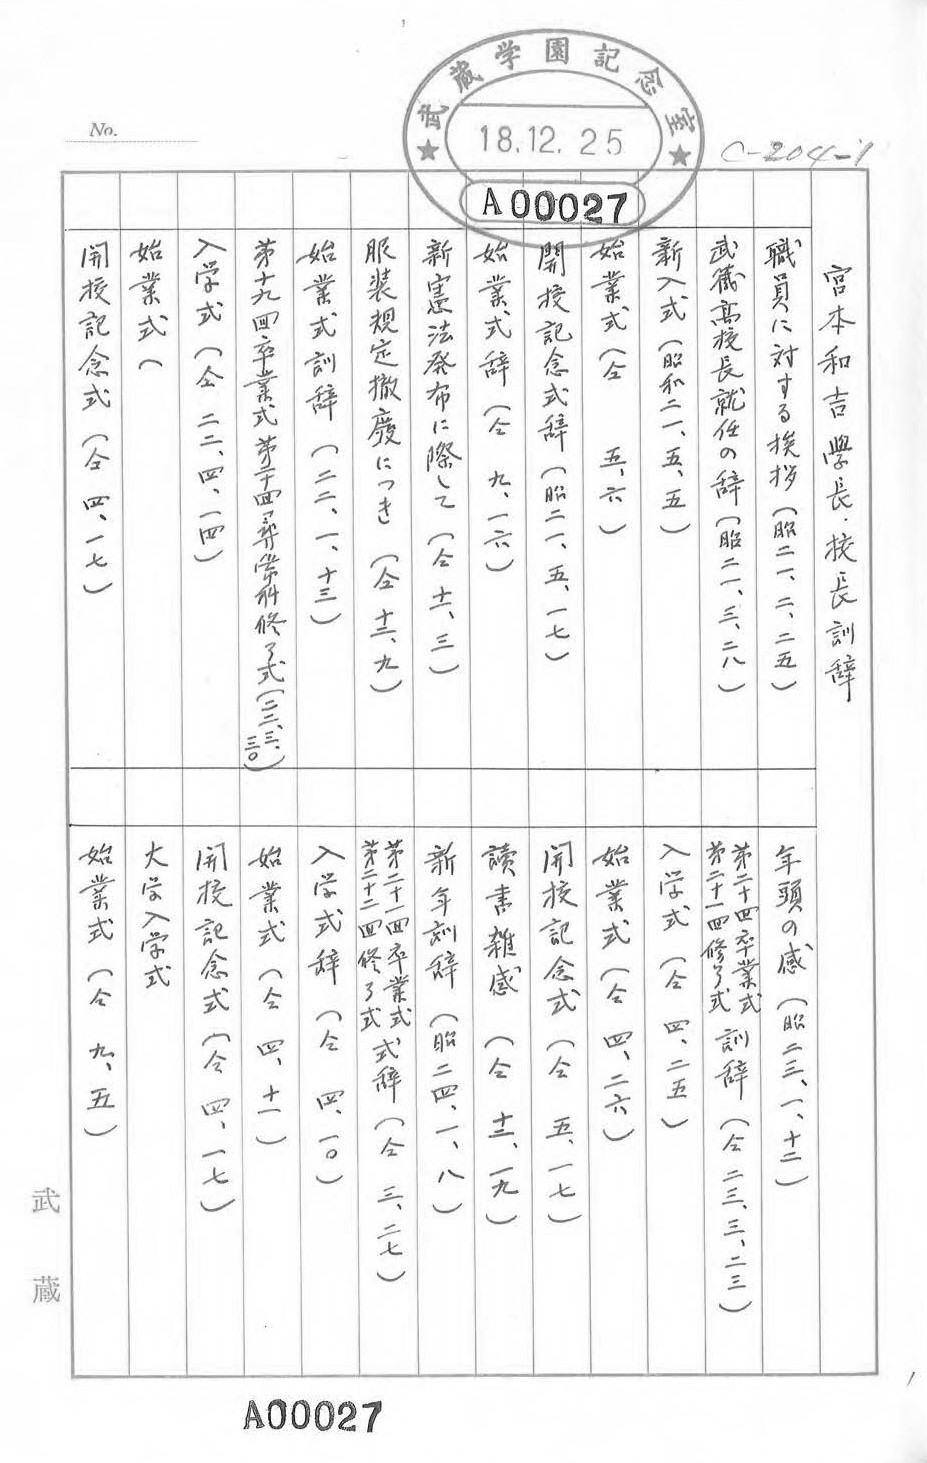 武蔵学園記念室
18.12.25
A00027
No.
C-204-1
宮本和吉學長・校長訓辞
職員に対する挨拶（昭二一、二、二五）
武蔵高校長就任の辞（昭二一、三、二八）
新入式（昭和二一、五、五）
始業式（仝 五、六）
開校記念式辞（昭二一、五、一七）
始業式辞（仝 九、一六）
新憲法発布に際して（仝 十一、三）
服装規定撤廃につき（仝 十二、九）
始業式訓辞（二二、一、十三）
第十九回卒業式 第二十回尋常科修了式（二二、三、三〇）
入学式（仝 二二、四、一四）
始業式（
開校記念式（仝 四、一七）
年頭の感（昭二三、一、十二）
第二十回卒業式
第二十一回修了式 訓辞（仝 二三、三、二三）
入学式（仝 四、二五）
始業式（仝 四、二六）
開校記念式（仝 五、一七）
讀書雑感（仝 十二、一九）
新年訓辞（昭二四、一、八）
第二十一回卒業式
第二十二回修了式 式辞（仝 三、二七）
入学式辞（仝 四、一〇）
始業式（仝 四、十一）
開校記念式（仝 四、一七）
大学入学式
始業式（仝 九、五）
武蔵
A00027
1